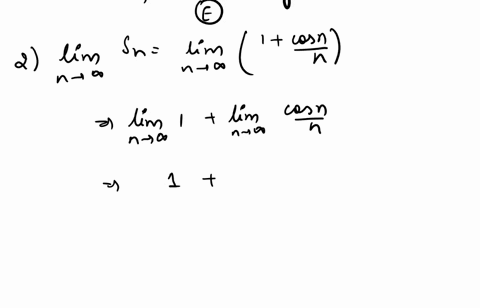 E
2) lim n→∞ Sn = lim n→∞ (1 + cosn/n)
⇒ lim n→∞ 1 + lim n→∞ cosn/n
⇒ 1 +